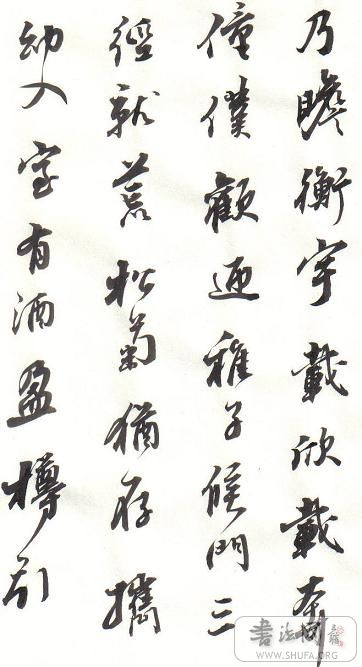 乃瞻衡宇載欣載奔
僮僕歡迎稚子候門三
徑就荒松菊猶存攜
幼入室有酒盈樽引
書法网
WWW.SHUFA.ORG